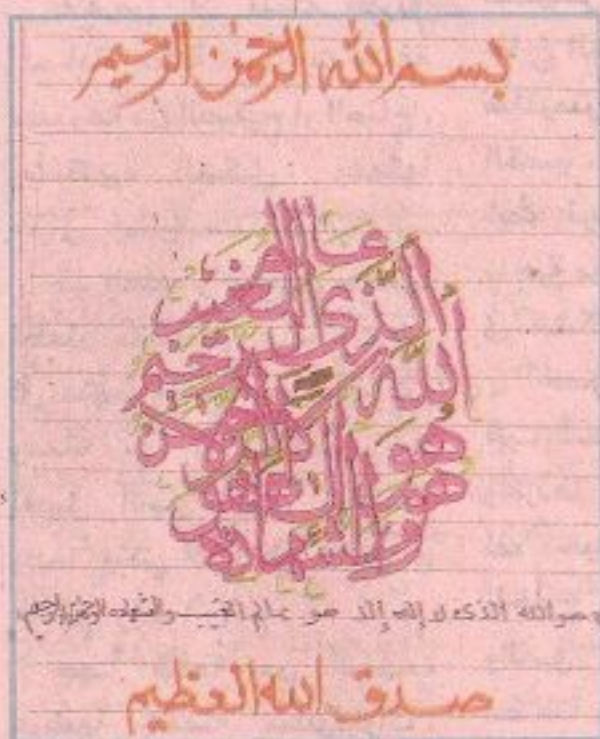 بسم الله الرحمن الرحيم
هو الله الذي لا إله إلا هو عالم الغيب والشهادة هو الرحمن الرحيم
هو الله الذى لا إله إلا هو عالم الغيب والشهاده الرحمن الرحيم
صدق الله العظيم